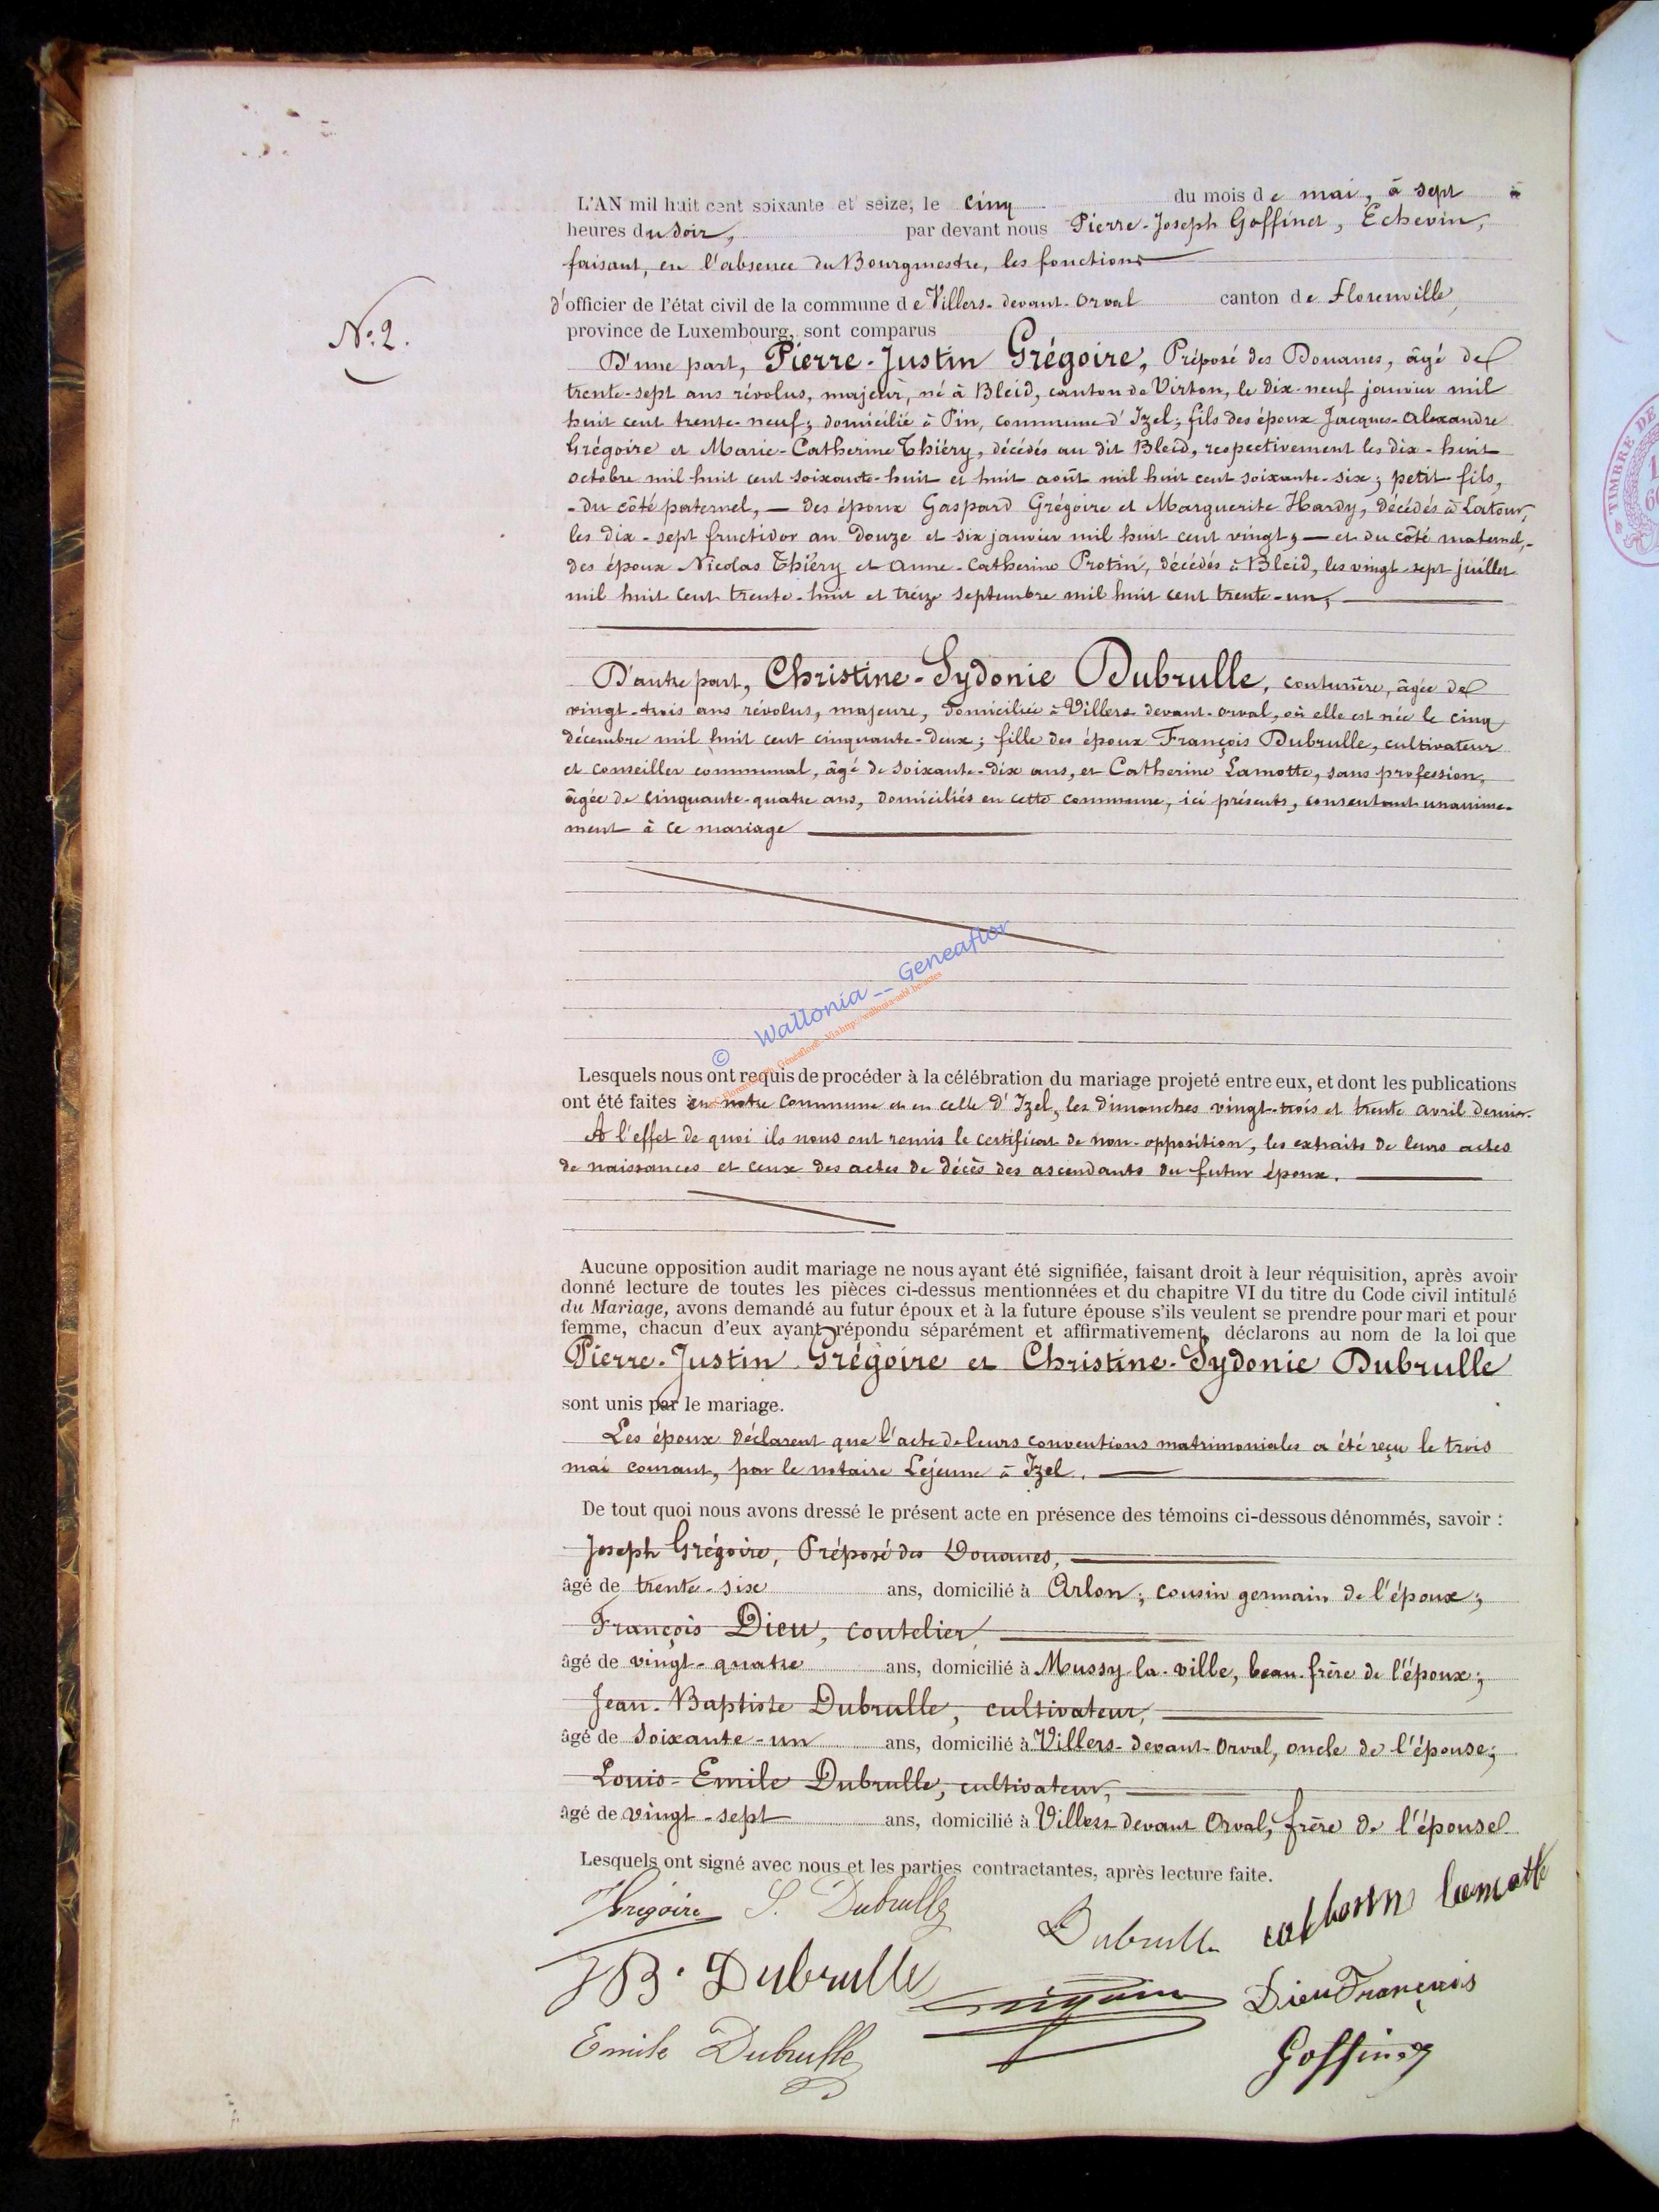 N.° 2.
L'AN mil huit cent soixante et seize, le cinq du mois de mai, à sept
heures du soir, par devant nous Pierre-Joseph Goffinet, Echevin,
faisant, en l'absence du Bourgmestre, les fonctions
d'officier de l'état civil de la commune de Villers-devant-Orval canton de Florenville,
province de Luxembourg, sont comparus
D'une part, Pierre-Justin Grégoire, Préposé des Douanes, âgé de
trente-sept ans révolus, majeur, né à Bleid, canton de Virton, le dix-neuf janvier mil
huit cent trente-neuf; domicilié à Pin, commune d'Izel; fils des époux Jacques-Alexandre
Grégoire et Marie-Catherine Thiéry, décédés au dit Bleid, respectivement les dix-huit
octobre mil huit cent soixante-huit et huit août mil huit cent soixante-six; petit-fils,
- du côté paternel, — des époux Gaspard Grégoire et Marguerite Hardy, décédés à Latour,
les dix-sept fructidor an douze et six janvier mil huit cent vingt; — et du côté maternel,-
des époux Nicolas Thiéry et Anne-Catherine Protin, décédés à Bleid, les vingt-sept juillet
mil huit cent trente-huit et treize septembre mil huit cent trente-un,
D'autre part, Christine-Sydonie Dubrulle, couturière, âgée de
vingt-trois ans révolus, majeure, domiciliée à Villers devant-Orval, où elle est née le cinq
décembre mil huit cent cinquante-deux; fille des époux François Dubrulle, cultivateur
et conseiller communal, âgé de soixante-dix ans, et Catherine Lamotte, sans profession,
âgée de cinquante-quatre ans, domiciliés en cette commune, ici présents, consentant unanime-
ment à ce mariage
© Wallonia -- Geneaflor
Lesquels nous ont requis de procéder à la célébration du mariage projeté entre eux, et dont les publications
ont été faites en notre commune et en celle d'Izel, les dimanches vingt-trois et trente avril dernier.
A l'effet de quoi ils nous ont remis le certificat de non-opposition, les extraits de leurs actes
de naissances et ceux des actes de décès des ascendants du futur époux.
Aucune opposition audit mariage ne nous ayant été signifiée, faisant droit à leur réquisition, après avoir
donné lecture de toutes les pièces ci-dessus mentionnées et du chapitre VI du titre du Code civil intitulé
du Mariage, avons demandé au futur époux et à la future épouse s'ils veulent se prendre pour mari et pour
femme, chacun d'eux ayant répondu séparément et affirmativement, déclarons au nom de la loi que
Pierre-Justin Grégoire et Christine-Sydonie Dubrulle
sont unis par le mariage.
Les époux déclarent que l'acte de leurs conventions matrimoniales a été reçu le trois
mai courant, par le notaire Lejeune à Izel.
De tout quoi nous avons dressé le présent acte en présence des témoins ci-dessous dénommés, savoir :
Joseph Grégoire, Préposé des Douanes,
âgé de trente-six ans, domicilié à Arlon; cousin germain de l'époux;
François Dieu, coutelier,
âgé de vingt-quatre ans, domicilié à Mussy-la-ville, beau-frère de l'époux;
Jean-Baptiste Dubrulle, cultivateur,
âgé de soixante-un ans, domicilié à Villers-devant-Orval, oncle de l'épouse;
Louis-Emile Dubrulle, cultivateur,
âgé de vingt-sept ans, domicilié à Villers devant Orval, frère de l'épouse
Lesquels ont signé avec nous et les parties contractantes, après lecture faite.
Grégoire S. Dubrulle Dubrulle
JB. Dubrulle Dieu François
Emile Dubrulle Goffinet
TIMBRE DE